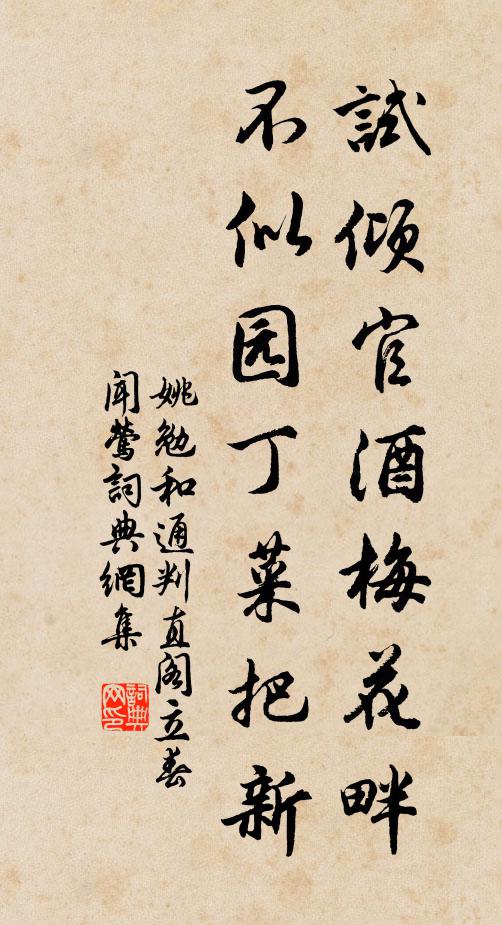 試傾官酒梅花畔
不似园丁菜把新
姚勉和通判直阁立春
闻鶯詞典網集
詞典网印